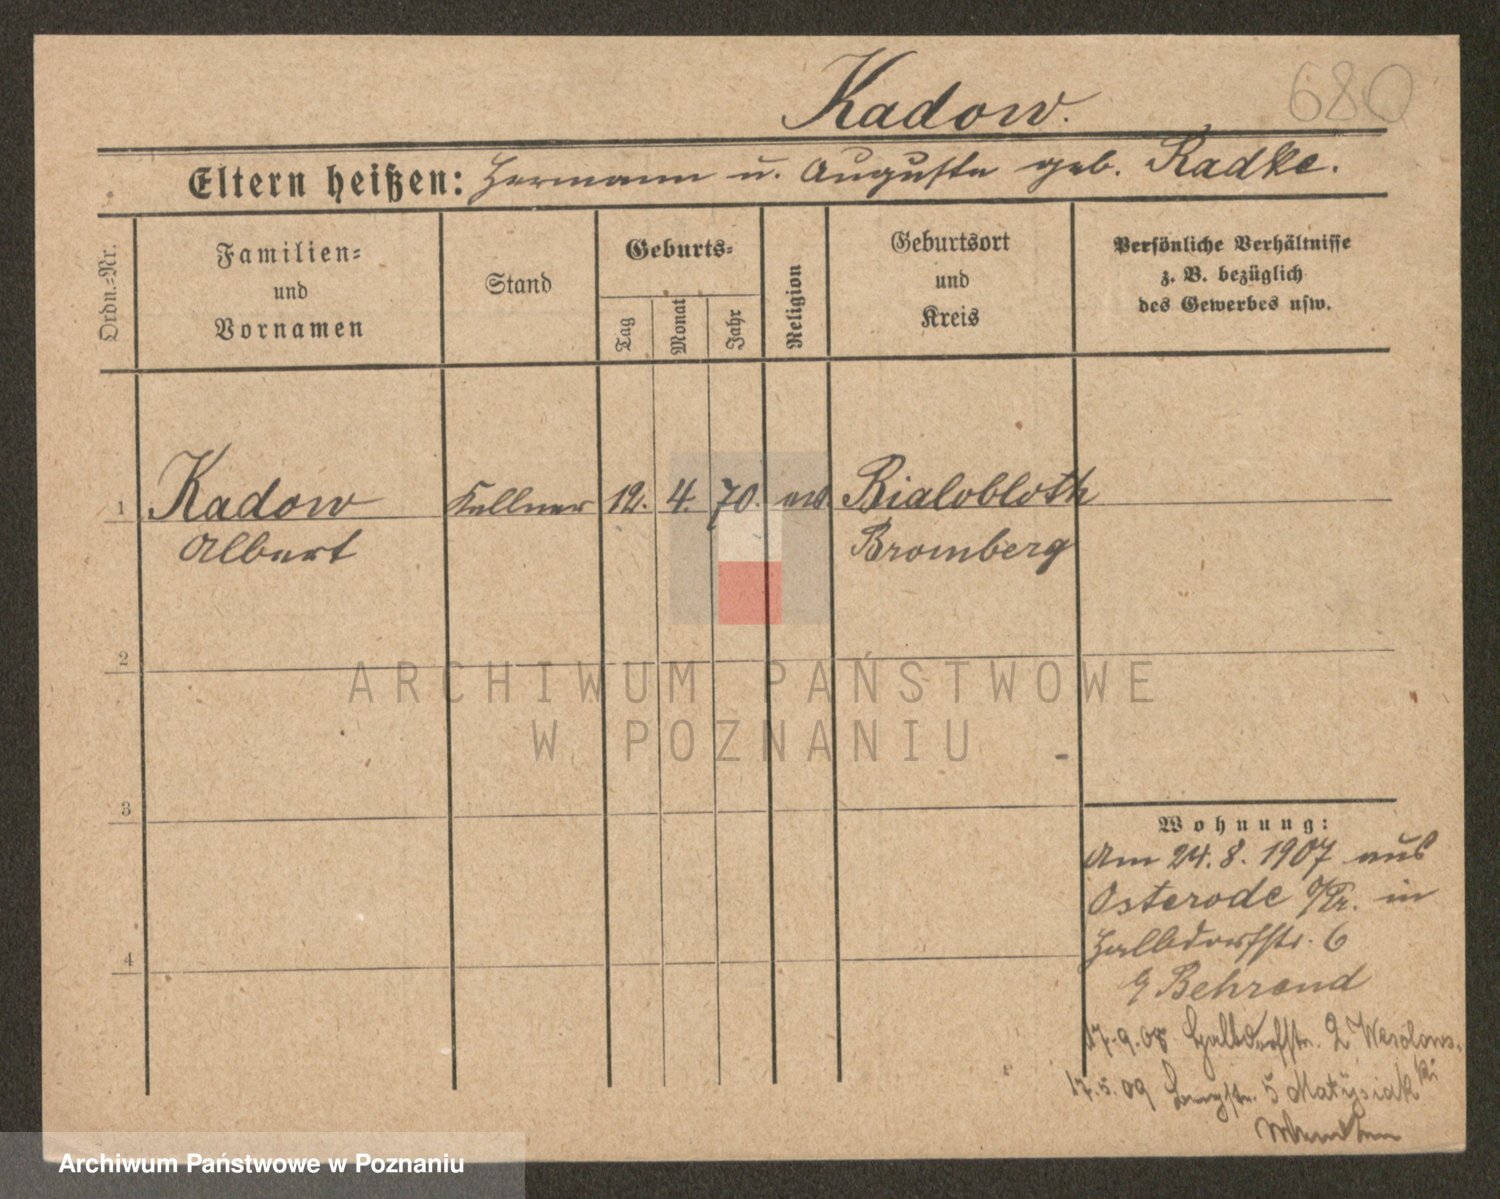 Kadow.
680
Eltern heißen: Hermann u. Auguste geb. Radke.
Ordn.-Nr.
Familien-
und
Vornamen
Stand
Geburts-
Tag
Monat
Jahr
Religion
Geburtsort
und
Kreis
Persönliche Verhältnisse
z. B. bezüglich
des Gewerbes usw.
1 Kadow Kellner 12. 4. 70. ev. Bialobloth
Albert Bromberg
2
3
4
Wohnung:
Am 24.8.1907 aus
Osterode O/Pr. in
Halbdorfstr. 6
b/ Behrend
17.9.08 Halbdorfstr. 2 Wesolows-
ki
17.5.09 Langstr. 5 Matysiak
ARCHIWUM PAŃSTWOWE
W POZNANIU
Archiwum Państwowe w Poznaniu